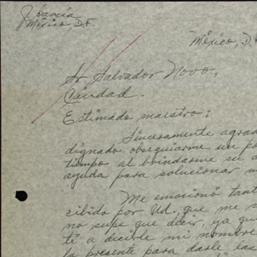 J. García
México, D.F.
México, D.
Sr. Salvador Novo,
Ciudad.
Estimado maestro:
Sinceramente agrad
dignado obsequiarme un po
tiempo al brindarme su a
ayuda para solucionar m
Me emocionó tant
cibido por Ud., que me
no supe que decir, ya qu
té a decirle mi nombre
la presente para darle las